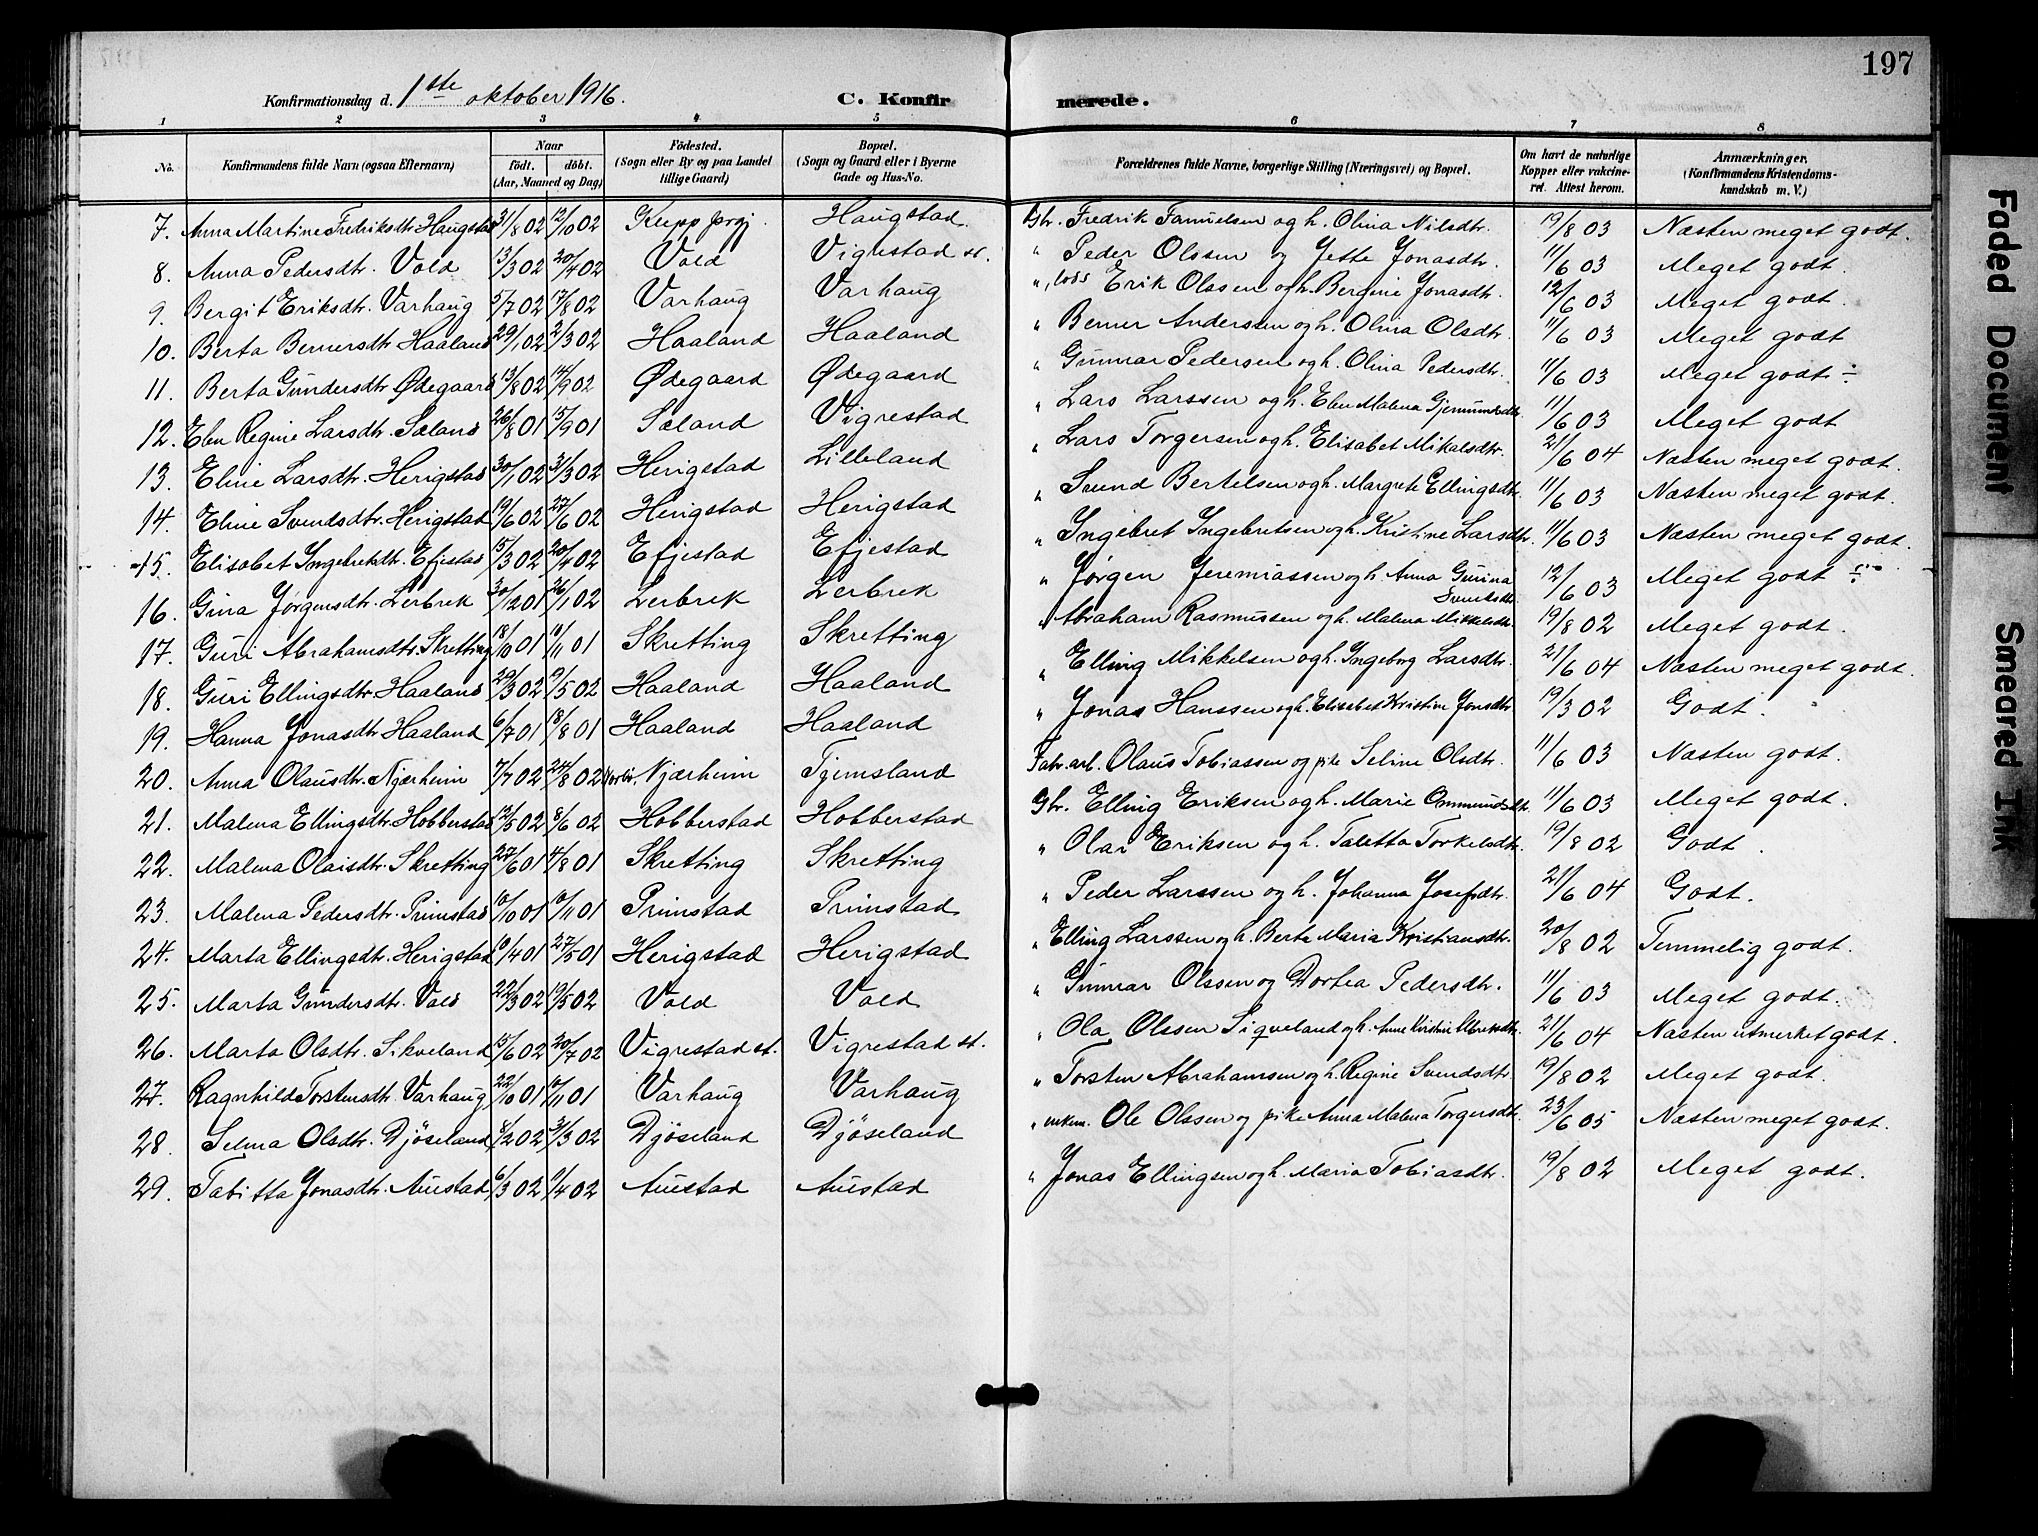 197
Konfirmationsdag d. 1ste oktober 1916.
C. Konfirmerede.
1 2 3 4 5 6 7 8
No. Konfirmandens fulde Navn (ogsaa Efternavn) Naar födt. döbt. (Aar, Maaned og Dag) Födested. (Sogn eller By og paa Landet tillige Gaard) Bopæl. (Sogn og Gaard eller i Byerne Gade og Hus-No. Forældrenes fulde Navne, borgerlige Stilling (Næringsvei) og Bopæl. Om havt de naturlige Kopper eller vakcineret. Attest herom. Anmærkninger. (Konfirmandens Kristendomskundskab m. V.)
7. Anna Martine Fredriksdtr. Haugstad 31/8 02 12/10 02 Kupp prgj. Haugstad. Gbr. Fredrik Samuelsen og h. Olina Nilsdtr. 19/8 03 Næsten meget godt.
8. Anna Pedersdtr. Vold 13/3 02 20/4 02 Vold Vigrestad st. " Peder Olssen og Jette Jonasdtr. 11/6 03 Meget godt.
9. Bergit Eriksdtr. Varhaug 5/7 02 17/8 02 Varhaug Varhaug ", lods Erik Olssen og h. Bergine Jonasdtr. 12/6 03 Meget godt.
10. Berta Bernersdtr Haaland 29/1 02 2/3 02 Haaland Haaland " Berner Anderssen og h. Olina Olsdtr 11/6 03 Meget godt
11. Berta Gundersdtr Ødegaard 13/8 02 14/9 02 Ødegaard Ødegaard " Gunnar Pedersen og h. Olina Pedersdtr. 11/6 03 Meget godt ÷
12. Elen Regine Larsdtr. Sæland 26/8 01 15/9 01 Sæland Vigrestad " Lars Larssen og h. Elen Malena Gjermundsdtr. 11/6 03 Meget godt
13. Eline Larsdtr. Herigstad 30/1 02 31/3 02 Herigstad Lilleland " Lars Torgersen og h. Elisabet Mikalsdtr. 21/6 04 Næsten meget godt.
14. Eline Svendsdtr. Herigstad 19/6 02 27/6 02 Herigstad Herigstad " Svend Bertelsen og h. Margrete Ellingsdtr. 11/6 03 Næsten meget godt.
15. Elisabet Ingebretsdtr. Efjestad 15/3 02 20/4 02 Efjestad Efjestad " Ingebret Ingebretsen og h. Kristine Larsdtr. 11/6 03 Næsten meget godt.
16. Gina Jörgensdtr. Lerbrek 30/12 01 26/1 02 Lerbrek Lerbrek " Jörgen Jeremiassen og h. Anna Gurina Svendsdtr. 12/6 03 Meget godt ÷
17. Guri Abrahamsdtr. Skretting 18/10 01 10/11 01 Skretting Skretting " Abraham Rasmussen og h. Malena Mikkelsdtr. 19/8 02 Meget godt.
18. Guri Ellingsdtr. Haaland 29/3 02 9/5 02 Haaland Haaland " Elling Mikkelsen og h. Ingeborg Larsdtr. 21/6 04 Næsten meget godt.
19. Hanna Jonasdtr Haaland 6/7 01 18/8 01 Haaland Haaland " Jonas Hanssen og h. Elisabet Kristine Jonsdtr. 19/3 02 Godt.
20. Anna Olausdtr. Njærheim 7/7 02 24/8 02 Njærheim Tjemsland Fabr. arb. Olaus Tobiassen og pike Seline Olsdtr. 11/6 03 Næsten godt.
21. Malena Ellingsdtr. Hobberstad 12/5 02 8/6 02 Hobberstad Hobberstad Gbr. Elling Eriksen og h. Marie Ommundsdtr. 11/6 03 Meget godt.
22. Malena Olaisdtr. Skretting 27/6 01 4/8 01 Skretting Skretting " Olai Eriksen og h. Taletta Torkelsdtr. 19/8 02 Godt.
23. Malena Pedersdtr. Primstad 10/10 01 10/11 01 Primstad Primstad " Peder Larssen og h. Johanna Josefsdtr. 21/6 04 Godt.
24. Marta Ellingsdtr. Herigstad 10/4 01 27/5 01 Herigstad Herigstad " Elling Larssen og h. Berta Maria Kristiansdtr. 20/8 02 Temmelig godt.
25. Marta Gundersdtr. Vold 22/3 02 19/5 02 Vold Vold " Gunnar Olssen og Dortea Pedersdtr. 11/6 03 Meget godt.
26. Marta Olsdtr. Sikveland 15/6 02 20/7 02 Vigrestad st. Vigrestad st. " Ola Olssen Siqveland og h. Anne Kristine 21/6 04 Næsten utmerket godt.
27. Ragnhild Torstensdtr. Varhaug 22/10 01 10/11 01 Varhaug Varhaug " Torsten Abrahamsen og h. Regine Svendsdtr. 19/8 02 Meget godt.
28. Selma Olsdtr. Djöseland 8/2 02 31/3 02 Djöseland Djöseland " enkem. Ole Olssen og pike Anna Malena Torgersdtr. 23/6 05 Næsten meget godt.
29. Tabitta Jonasdtr. Auestad 6/3 02 9/4 02 Auestad Auestad " Jonas Ellingsen og h. Maria Tobiasdtr. 19/8 02 Meget godt.
Faded Document
Smeared Ink